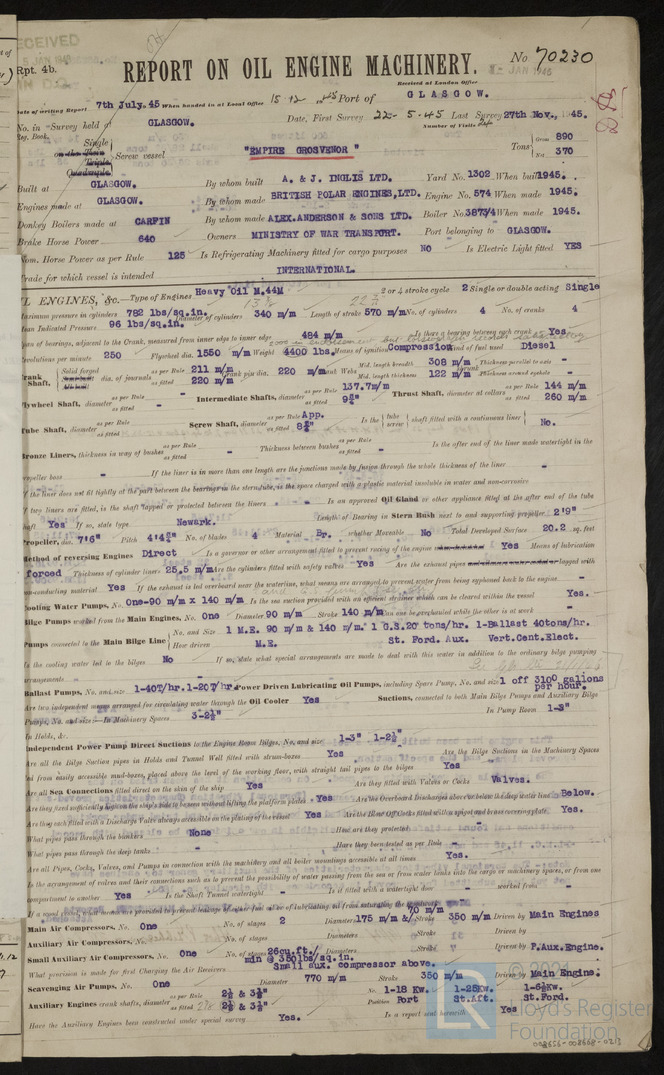 RECEIVED
Rpt. 4b.
No 70230
REPORT ON OIL ENGINE MACHINERY.
JAN 1946
Received at London Office
Date of writing Report 7th July. 45 When handed in at Local Office 15.12 1945 Port of GLASGOW.
No. in Survey held at GLASGOW. Date, First Survey 22-5-45 Last Survey 27th Nov., 1945.
Reg. Book. Number of Visits
Single
on the Twin Screw vessel "EMPIRE GROSVENOR" Tons Gross 890
Triple
Quadruple Net 370
Built at GLASGOW. By whom built A. & J. INGLIS LTD. Yard No. 1302 When built 1945.
Engines made at GLASGOW. By whom made BRITISH POLAR ENGINES, LTD. Engine No. 574 When made 1945.
Donkey Boilers made at CARFIN By whom made ALEX. ANDERSON & SONS LTD. Boiler No. 3873/4 When made 1945.
Brake Horse Power 640 Owners MINISTRY OF WAR TRANSPORT. Port belonging to GLASGOW.
Nom. Horse Power as per Rule 125 Is Refrigerating Machinery fitted for cargo purposes NO Is Electric Light fitted YES
Trade for which vessel is intended INTERNATIONAL.
OIL ENGINES, &c.—Type of Engines Heavy Oil M.44M 2 or 4 stroke cycle 2 Single or double acting Single
Maximum pressure in cylinders 782 lbs/sq.in. Diameter of cylinders 340 m/m Length of stroke 570 m/m No. of cylinders 4 No. of cranks 4
Mean Indicated Pressure 96 lbs/sq.in.
Span of bearings, adjacent to the Crank, measured from inner edge to inner edge 484 m/m Is there a bearing between each crank Yes
Revolutions per minute 250 Flywheel dia. 1550 m/m Weight 4400 lbs. Means of ignition Compression Kind of fuel used Diesel
Crank Shaft, Solid forged dia. of journals as per Rule 211 m/m as fitted 220 m/m Crank pin dia. 220 m/m Crank Webs Mid. length breadth 308 m/m Mid. length thickness 122 m/m Thickness parallel to axis - Thickness around eyehole -
Flywheel Shaft, diameter as per Rule - as fitted - Intermediate Shafts, diameter as per Rule 137.7m/m as fitted Thrust Shaft, diameter at collars as per Rule 144 m/m as fitted 260 m/m
Tube Shaft, diameter as per Rule - as fitted - Screw Shaft, diameter as per Rule App. as fitted Is the tube screw shaft fitted with a continuous liner No.
Bronze Liners, thickness in way of bushes as per Rule - as fitted - Thickness between bushes as per Rule - as fitted - Is the after end of the liner made watertight in the
propeller boss - If the liner is in more than one length are the junctions made by fusion through the whole thickness of the liner -
If the liner does not fit tightly at the part between the bearings in the stern tube, is the space charged with a plastic material insoluble in water and non-corrosive -
If two liners are fitted, is the shaft lapped or protected between the liners - Is an approved Oil Gland or other appliance fitted at the after end of the tube
shaft Yes If so, state type Newark. Length of Bearing in Stern Bush next to and supporting propeller 2'9"
Propeller, dia. 7'6" Pitch No. of blades 4 Material Br. whether Moveable No Total Developed Surface 20.2 sq. feet
Method of reversing Engines Direct Is a governor or other arrangement fitted to prevent racing of the engine Yes Means of lubrication
forced Thickness of cylinder liners 25.5 m/m Are the cylinders fitted with safety valves Yes Are the exhaust pipes lagged with
non-conducting material Yes If the exhaust is led overboard near the waterline, what means are arranged to prevent water from being syphoned back to the engine -
Cooling Water Pumps, No. One-90 m/m x 140 m/m Is the sea suction provided with an efficient strainer which can be cleared within the vessel Yes.
Bilge Pumps worked from the Main Engines, No. One Diameter 90 m/m Stroke 140 m/m Can one be overhauled while the other is at work -
Pumps connected to the Main Bilge Line No. and Size 1 M.E. 90 m/m & 140 m/m. 1 G.S. 20 tons/hr. 1-Ballast 40tons/hr.
How driven M.E. St. Ford. Aux. Vert.Cent.Elect.
Is the cooling water led to the bilges No If so, state what special arrangements are made to deal with this water in addition to the ordinary bilge pumping
arrangements -
Ballast Pumps, No. and size 1-40T/hr. 1-20T/hr. Power Driven Lubricating Oil Pumps, including Spare Pump, No. and size 1 off 3100 gallons per hour.
Are two independent means arranged for circulating water through the Oil Cooler Yes Suctions, connected to both Main Bilge Pumps and Auxiliary Bilge
Pumps, No. and size:—In Machinery Spaces 3-2½" In Pump Room 1-3"
In Holds, &c.
Independent Power Pump Direct Suctions to the Engine Room Bilges, No. and size 1-3" 1-2½"
Are all the Bilge Suction pipes in Holds and Tunnel Well fitted with strum-boxes Yes Are the Bilge Suctions in the Machinery Spaces
led from easily accessible mud-boxes, placed above the level of the working floor, with straight tail pipes to the bilges Yes
Are all Sea Connections fitted direct on the skin of the ship Yes Are they fitted with Valves or Cocks Valves.
Are they fixed sufficiently high on the ship's side to be seen without lifting the platform plates Yes Are the Overboard Discharges above or below the deep water line Below.
Are they each fitted with a Discharge Valve always accessible on the plating of the vessel Yes Are the Blow Off Cocks fitted with a spigot and brass covering plate Yes.
What pipes pass through the bunkers None How are they protected -
What pipes pass through the deep tanks - Have they been tested as per Rule -
Are all Pipes, Cocks, Valves, and Pumps in connection with the machinery and all boiler mountings accessible at all times Yes.
Is the arrangement of valves and their connections such as to prevent the possibility of water passing from the sea or from water tanks into the cargo or machinery spaces, or from one
compartment to another Yes Is the Shaft Tunnel watertight - Is it fitted with a watertight door - worked from -
Main Air Compressors, No. One No. of stages 2 Diameters 175 m/m & 70 m/m Stroke 350 m/m Driven by Main Engines
Auxiliary Air Compressors, No. No. of stages Diameters Stroke Driven by
Small Auxiliary Air Compressors, No. One No. of stages 26cu.ft./min @ 350lbs/sq.in. Diameters Stroke Driven by P.Aux.Engine.
What provision is made for first Charging the Air Receivers Small aux. compressor above.
Scavenging Air Pumps, No. One Diameter 770 m/m Stroke 350 m/m Driven by Main Engine.
Auxiliary Engines crank shafts, diameter as per Rule 2½ & 3½" as fitted 2½ & 3½" No. 1-18 Kw. 1-25Kw. 1-6½Kw.
Position Port St.Aft. St.Ford.
Have the Auxiliary Engines been constructed under special survey Yes. Is a report sent herewith Yes
© 2021
Lloyd's Register
Foundation
008656-008668-0213